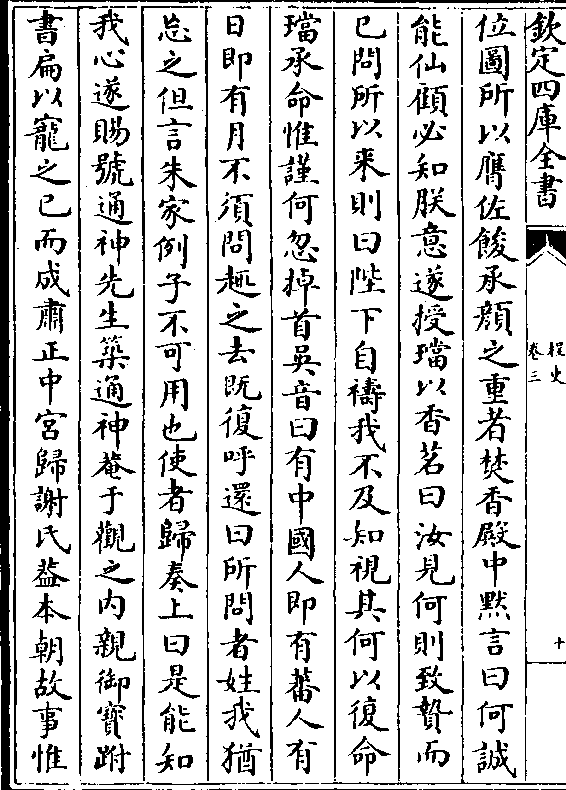 欽定四庫全書
桯史
卷三
十
位圖所以膺佐餕承顔之重者焚香殿中黙言曰何誠
能仙顧必知朕意遂授璫以香茗曰汝見何則致贄而
已問所以来則曰陛下自禱我不及知視其何以復命
璫承命惟謹何忽掉首吳音曰有中國人即有蕃人有
日即有月不須問趣之去既復呼還曰所問者姓我猶
忘之但言朱家例子不可用也使者歸奏上曰是能知
我心遂賜號通神先生築通神菴于觀之内親御寶跗
書扁以寵之已而成肅正中宮歸謝氏葢本朝故事惟